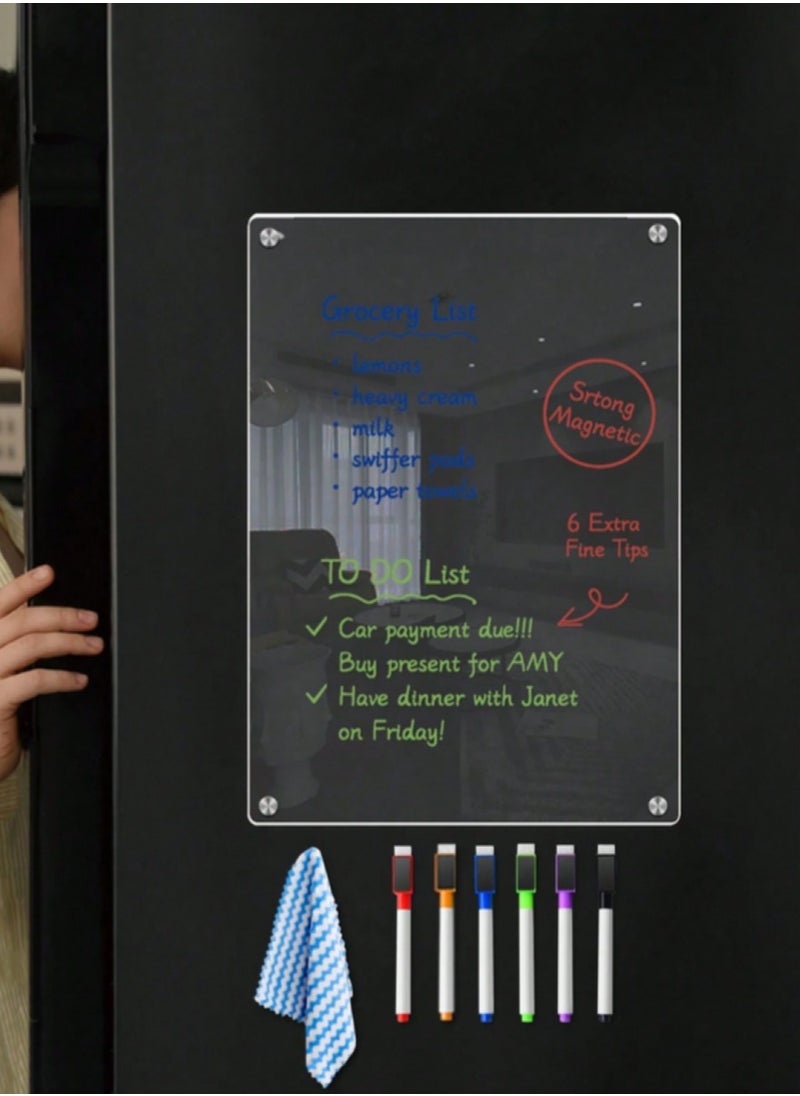 Grocery List
• lemons
• heavy cream
• milk
• swiffer pads
• paper towels
Srtong
Magnetic
6 Extra
Fine Tips
TO DO List
✓ Car payment due!!!
Buy present for AMY
✓ Have dinner with Janet
on Friday!